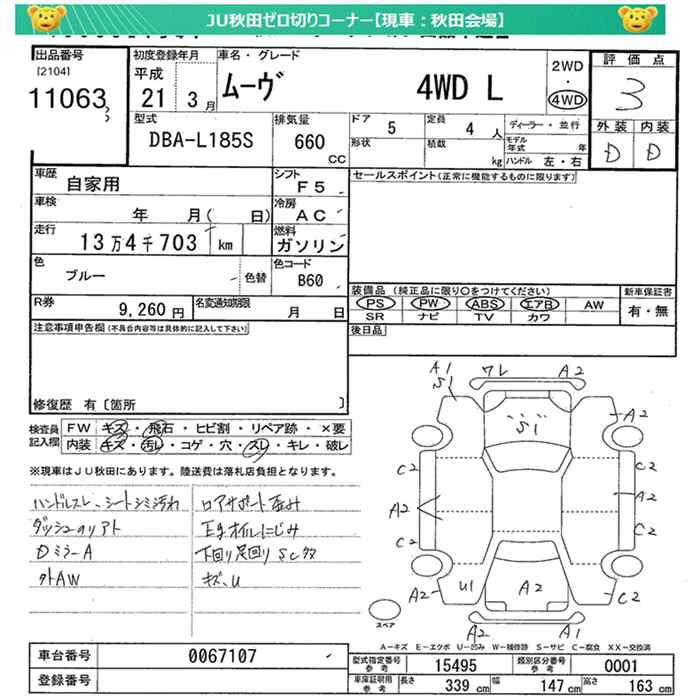 JU秋田ゼロ切りコーナー【現車：秋田会場】
出品番号
[2104]
11063
初度登録年月
平成
21 3月
車名・グレード
ムーヴ 4WD L
2WD
・
4WD
評価点
3
外装 内装
D D
型式
DBA-L185S
排気量
660
CC
ドア
5
定員
4 人
ディーラー・並行
形状
積載
kg
モデル年式 年
ハンドル 左・右
車歴
自家用
シフト
F5
セールスポイント(正常に機能するものに限ります)
車検
年 月( 日)
冷房
AC
走行
13万4千703 km
燃料
ガソリン
色
ブルー
色替
色コード
B60
装備品 (純正品に限り○をつけてください)
PS PW ABS エアB AW
SR ナビ TV カワ
新車保証書
有・無
R券
9,260 円
名変通知期限
月 日
後日品
注意事項申告欄(不具合内容等は具体的に記入して下さい)
修復歴 有 [箇所 ]
検査員
記入欄
FW キズ・飛石・ヒビ割・リペア跡・×要
内装 キズ・汚レ・コゲ・穴・スレ・キレ・破レ
※現車はJU秋田にあります。陸送費は落札店負担となります。
ハンドルスレ、シートシミ汚れ
ダッシュのリアト
DミラーA
外AW
ロアサポート歪み
E/gオイルにじみ
下回り足回りSC多
キズ、U
A1
S1
ワレ
A2
S1
A2
C2
C2
A2
A2
C2
C2
A2
U1
A2
C2
スペア
A2
A1
A－キズ E－エクボ U－凹み W－補修跡 S－サビ C－腐食 XX－交換済
車台番号
0067107
登録番号
型式指定番号
参考
15495
類別区分番号
参考
0001
車庫証明用
参考
長さ 339 cm
幅 147 cm
高さ 163 cm